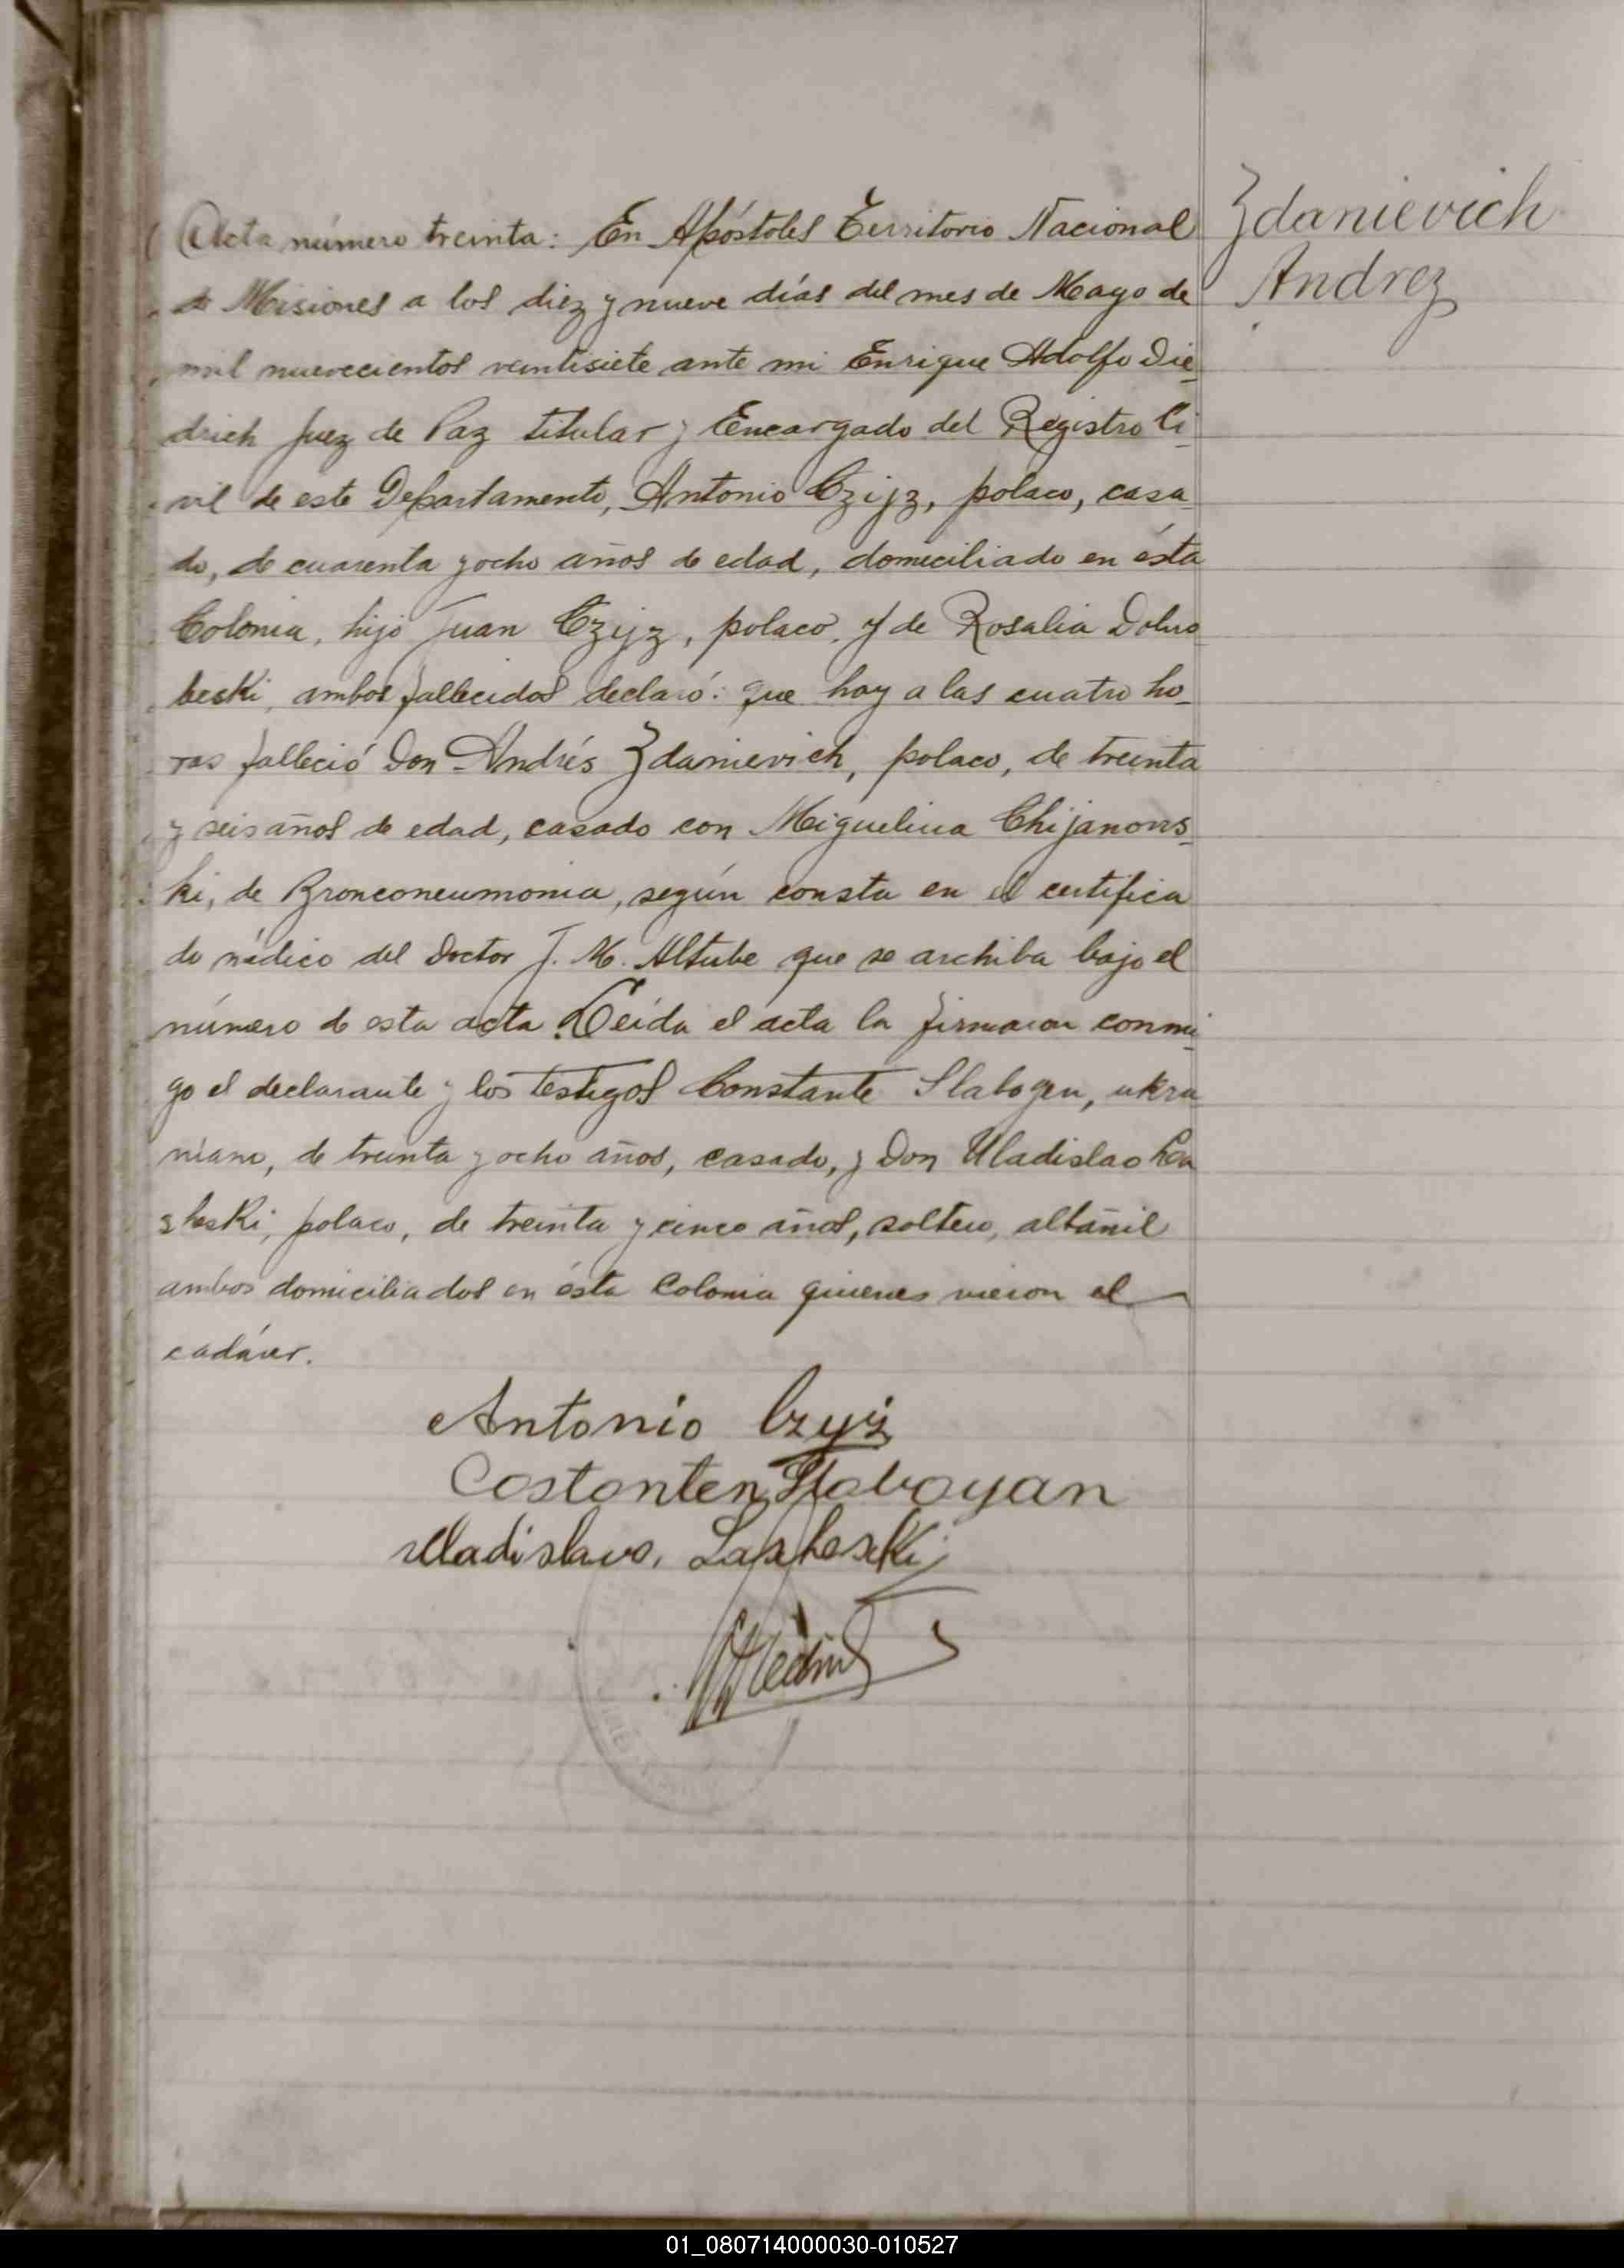 Acta número treinta: En Apóstoles Territorio Nacional
de Misiones a los diez y nueve días del mes de Mayo de
mil nuevecientos veintisiete ante mi Enrique Adolfo Die-
drich Juez de Paz titular y Encargado del Registro Ci-
vil de este Departamento, Antonio Czijz, polaco, casa
do, de cuarenta y ocho años de edad, domiciliado en ésta
Colonia, hijo Juan Czijz, polaco, y de Rosalia Dobro
beski, ambos fallecidos declaró: que hoy a las cuatro ho-
ras falleció Don Andrés Zdanievich, polaco, de treinta
y seis años de edad, casado con Miguelina Chijanows-
ki, de Bronconeumonia, según consta en el certifica
do médico del Doctor J. M. Altube que se archiba bajo el
número de esta acta. Leída el acta la firmaron conmi-
go el declarante y los testigos Constante Slabogen, ukra
niano, de treinta y ocho años, casado, y Don Uladislao
polaco, de treinta y cinco años, soltero, albañil
ambos domiciliados en ésta Colonia quienes vieron el
cadáver.
Zdanievich
Andrez
Antonio Czyż
Costanten Slaboyan
Uladislavo,
01_080714000030-010527